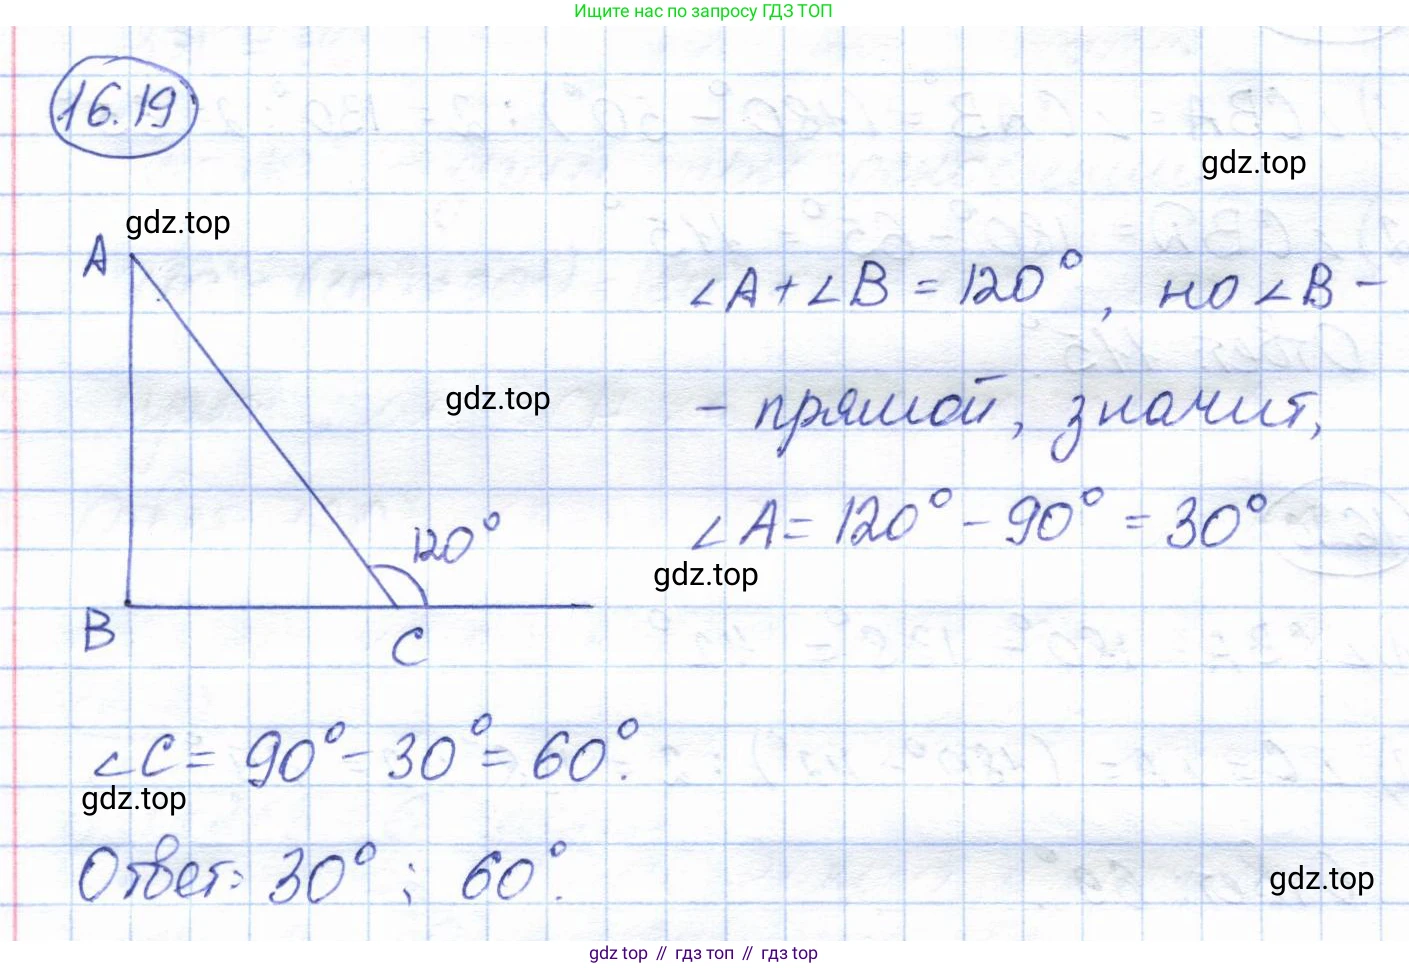 Ищите нас по запросу ГДЗ ТОП
16.19
gdz.top
gdz.top
A
∠A + ∠B = 120°, но ∠B -
gdz.top
- прямой, значит,
120°
∠A = 120° - 90° = 30°
gdz.top
B
C
∠C = 90° - 30° = 60°.
gdz.top
Ответ: 30° ; 60°.
gdz.top
gdz top // гдз топ // gdz top